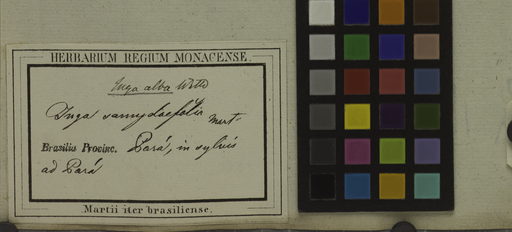 HERBARIUM REGIUM MONACENSE.
Inga alba Willd
Inga samydaefolia Mart.
Brasilia Provinc. Pará, in sylvis
ad Pará
Martii iter brasiliense.